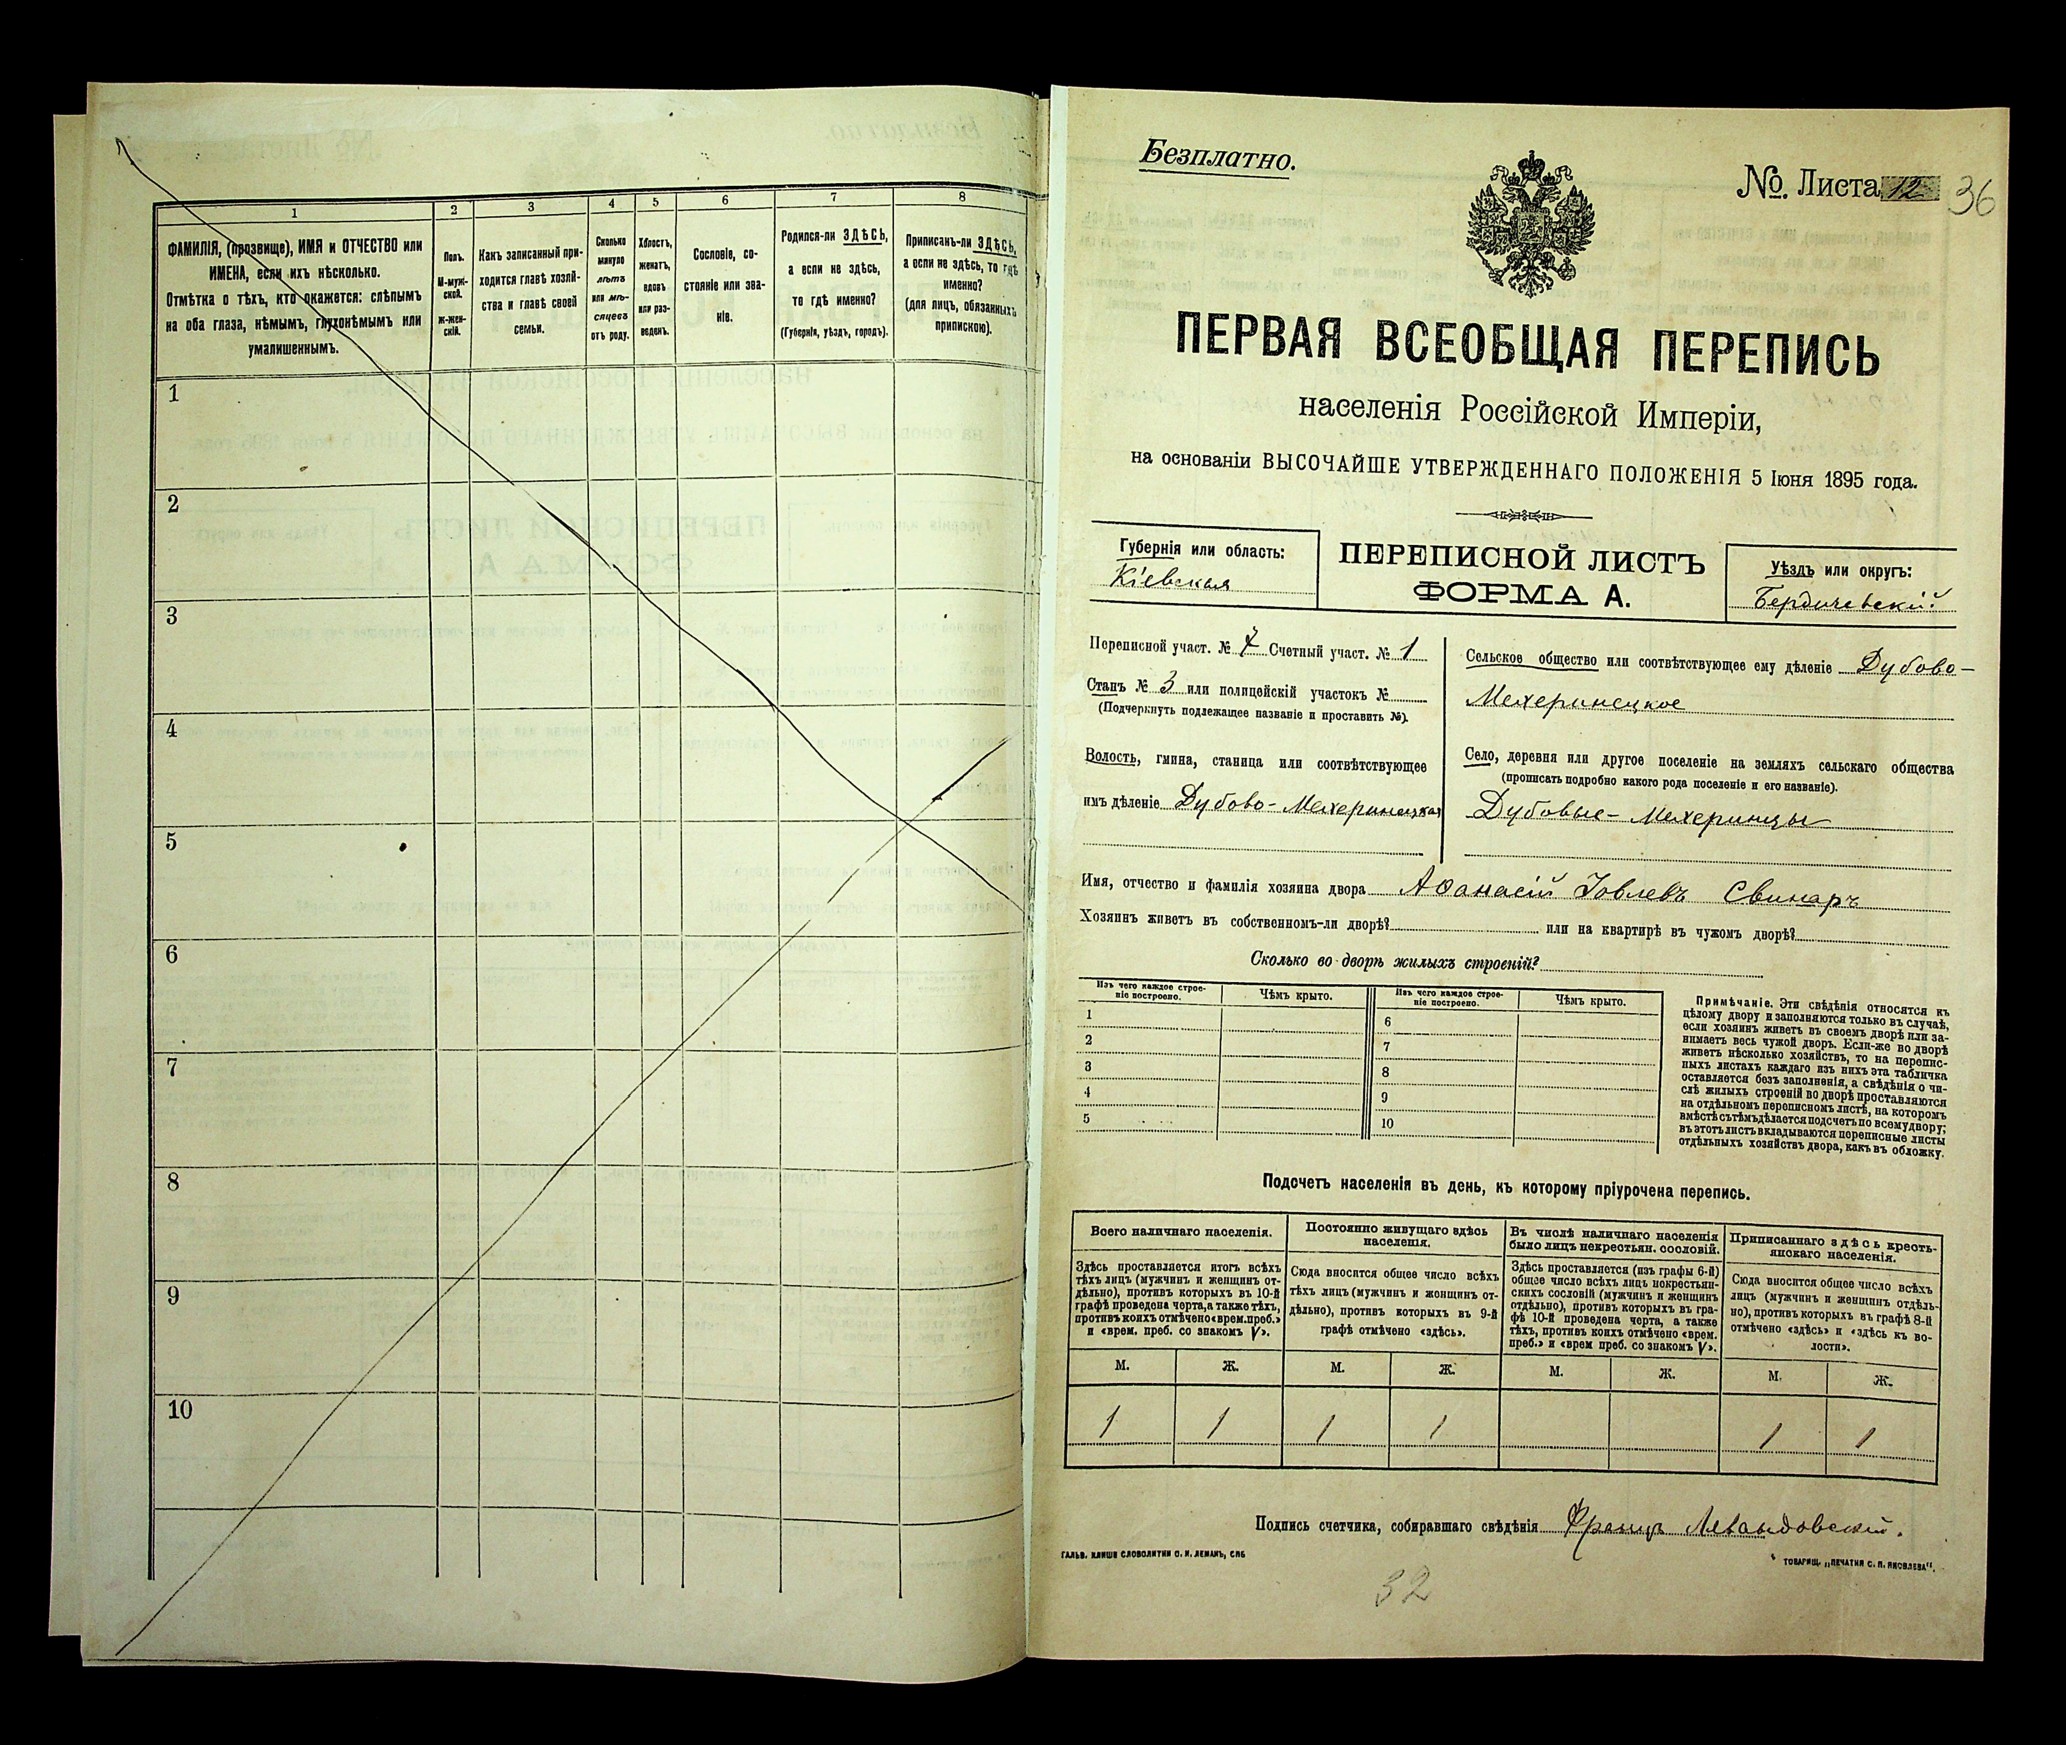 1 2 3 4 5 6 7 8
ФАМИЛІЯ, (прозвище), ИМЯ и ОТЧЕСТВО или
ИМЕНА, если ихъ нѣсколько.
Отмѣтка о тѣхъ, кто окажется: слѣпымъ
на оба глаза, нѣмымъ, глухонѣмымъ или
умалишеннымъ.
Полъ.
М-муж-
ской.
Ж-жен-
скій.
Какъ записанный при-
ходится главѣ хозяй-
ства и главѣ своей
семьи.
Сколько
минуло
лѣтъ
или мѣ-
сяцевъ
отъ роду.
Холостъ,
женатъ,
вдовъ
или раз-
веденъ.
Сословіе, со-
стояніе или зва-
ніе.
Родился-ли ЗДѢСЬ,
а если не здѣсь,
то гдѣ именно?
(Губернія, уѣздъ, городъ).
Приписанъ-ли ЗДѢСЬ,
а если не здѣсь, то гдѣ
именно?
(для лицъ, обязанныхъ
припискою).
1
2
3
4
5
6
7
8
9
10
Безплатно.
№ Листа 12 36
ПЕРВАЯ ВСЕОБЩАЯ ПЕРЕПИСЬ
населенія Россійской Имперіи,
на основаніи ВЫСОЧАЙШЕ УТВЕРЖДЕННАГО ПОЛОЖЕНІЯ 5 Іюня 1895 года.
Губернія или область:
Кіевская
ПЕРЕПИСНОЙ ЛИСТЪ
ФОРМА А.
Уѣздъ или округъ:
Бердичевскій
Переписной участ. № 7 Счетный участ. № 1
Станъ № 3 или полицейскій участокъ №
(Подчеркнуть подлежащее названіе и проставить №).
Волость, гмина, станица или соотвѣтствующее
имъ дѣленіе Дубово-Мехеринецкая
Сельское общество или соотвѣтствующее ему дѣленіе Дубово-
Мехеринецкое
Село, деревня или другое поселеніе на земляхъ сельскаго общества
(прописать подробно какого рода поселеніе и его названіе).
Дубовые-Мехеринцы
Имя, отчество и фамилія хозяина двора Аѳанасій Іовлевъ Свинаръ
Хозяинъ живетъ въ собственномъ-ли дворѣ? или на квартирѣ въ чужомъ дворѣ?
Сколько во дворѣ жилыхъ строеній?
Изъ чего каждое строе-
ніе построено.
Чѣмъ крыто.
Изъ чего каждое строе-
ніе построено.
Чѣмъ крыто.
1
2
3
4
5
6
7
8
9
10
Примѣчаніе. Эти свѣдѣнія относятся къ
цѣлому двору и заполняются только въ случаѣ,
если хозяинъ живетъ въ своемъ дворѣ или за-
нимаетъ весь чужой дворъ. Если-же во дворѣ
живетъ нѣсколько хозяйствъ, то на перепис-
ныхъ листахъ каждаго изъ нихъ эта табличка
оставляется безъ заполненія, а свѣдѣнія о чи-
слѣ жилыхъ строеній во дворѣ проставляются
на отдѣльномъ переписномъ листѣ, на которомъ
вмѣстѣ съ тѣмъ дѣлается подсчетъ по всему двору;
въ этотъ листъ вкладываются переписные листы
отдѣльныхъ хозяйствъ двора, какъ въ обложку.
Подсчетъ населенія въ день, къ которому пріурочена перепись.
Всего наличнаго населенія.
Постоянно живущаго здѣсь
населенія.
Въ числѣ наличнаго населенія
было лицъ некрестьян. сословій.
Приписаннаго здѣсь кресть-
янскаго населенія.
Здѣсь проставляется итогъ всѣхъ
тѣхъ лицъ (мужчинъ и женщинъ от-
дѣльно), противъ которыхъ въ 10-й
графѣ проведена черта, а также тѣхъ,
противъ коихъ отмѣчено «врем. преб.»
и «врем. преб. со знакомъ V».
Сюда вносится общее число всѣхъ
тѣхъ лицъ (мужчинъ и женщинъ от-
дѣльно), противъ которыхъ въ 9-й
графѣ отмѣчено «здѣсь».
Здѣсь проставляется (изъ графы 6-й)
общее число всѣхъ лицъ некрестьян-
скихъ сословій (мужчинъ и женщинъ
отдѣльно), противъ которыхъ въ гра-
фѣ 10-й проведена черта, а также
тѣхъ, противъ коихъ отмѣчено «врем.
преб.» и «врем преб. со знакомъ V».
Сюда вносится общее число всѣхъ
лицъ (мужчинъ и женщинъ отдѣль-
но), противъ которыхъ въ графѣ 8-й
отмѣчено «здѣсь» и «здѣсь къ во-
лости».
М. Ж. М. Ж. М. Ж. М. Ж.
1 1 1 1 1 1
Подпись счетчика, собиравшаго свѣдѣнія Францъ Левандовскій.
ГАЛЬВ. КЛИШЕ СЛОВОЛИТНИ О. И. ЛЕМАНЪ, СПБ
ТОВАРИЩ. „ПЕЧАТНЯ С. П. ЯКОВЛЕВА“.
32